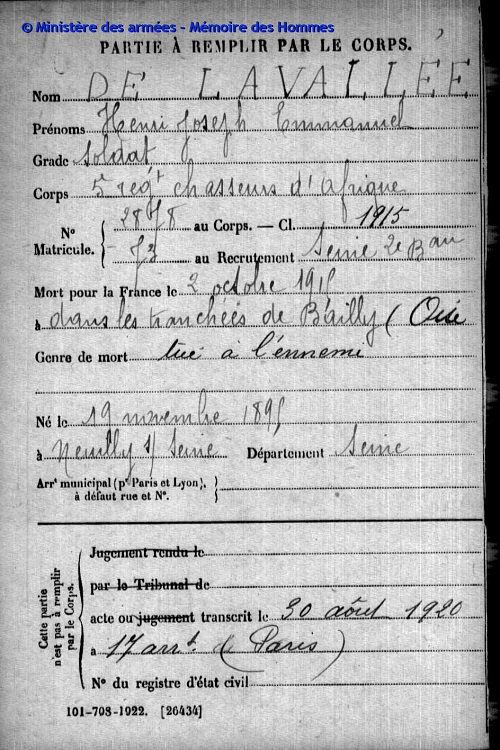 © Ministère des armées - Mémoire des Hommes
PARTIE À REMPLIR PAR LE CORPS.
Nom DE LAVALLÉE
Prénoms Henri Joseph Emmanuel
Grade Soldat
Corps 5e regt chasseurs d'Afrique
N° Matricule. { 2878 au Corps. — Cl. 1915
73 au Recrutement Seine 2e Bau
Mort pour la France le 2 octobre 1915
à dans les tranchéés de Bailly (Oise
Genre de mort tué à l'énnemi
Né le 19 novembre 1895
à Neuilly s/ Seine Département Seine
Arrt municipal (pr Paris et Lyon),
à défaut rue et N°.
Cette partie n'est pas à remplir par le Corps.
Jugement rendu le
par le Tribunal de
acte ou jugement transcrit le 30 aôut 1920
à 17 arrt. (Paris)
N° du registre d'état civil
101-708-1922. [26434]